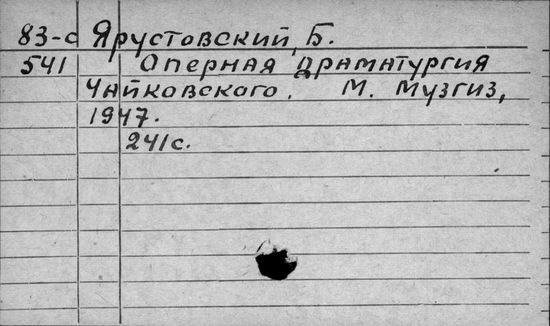 83-с Ярустовский, Б.
541 Оперная драматургия
Чайковского. М. Музгиз,
1947.
241с.